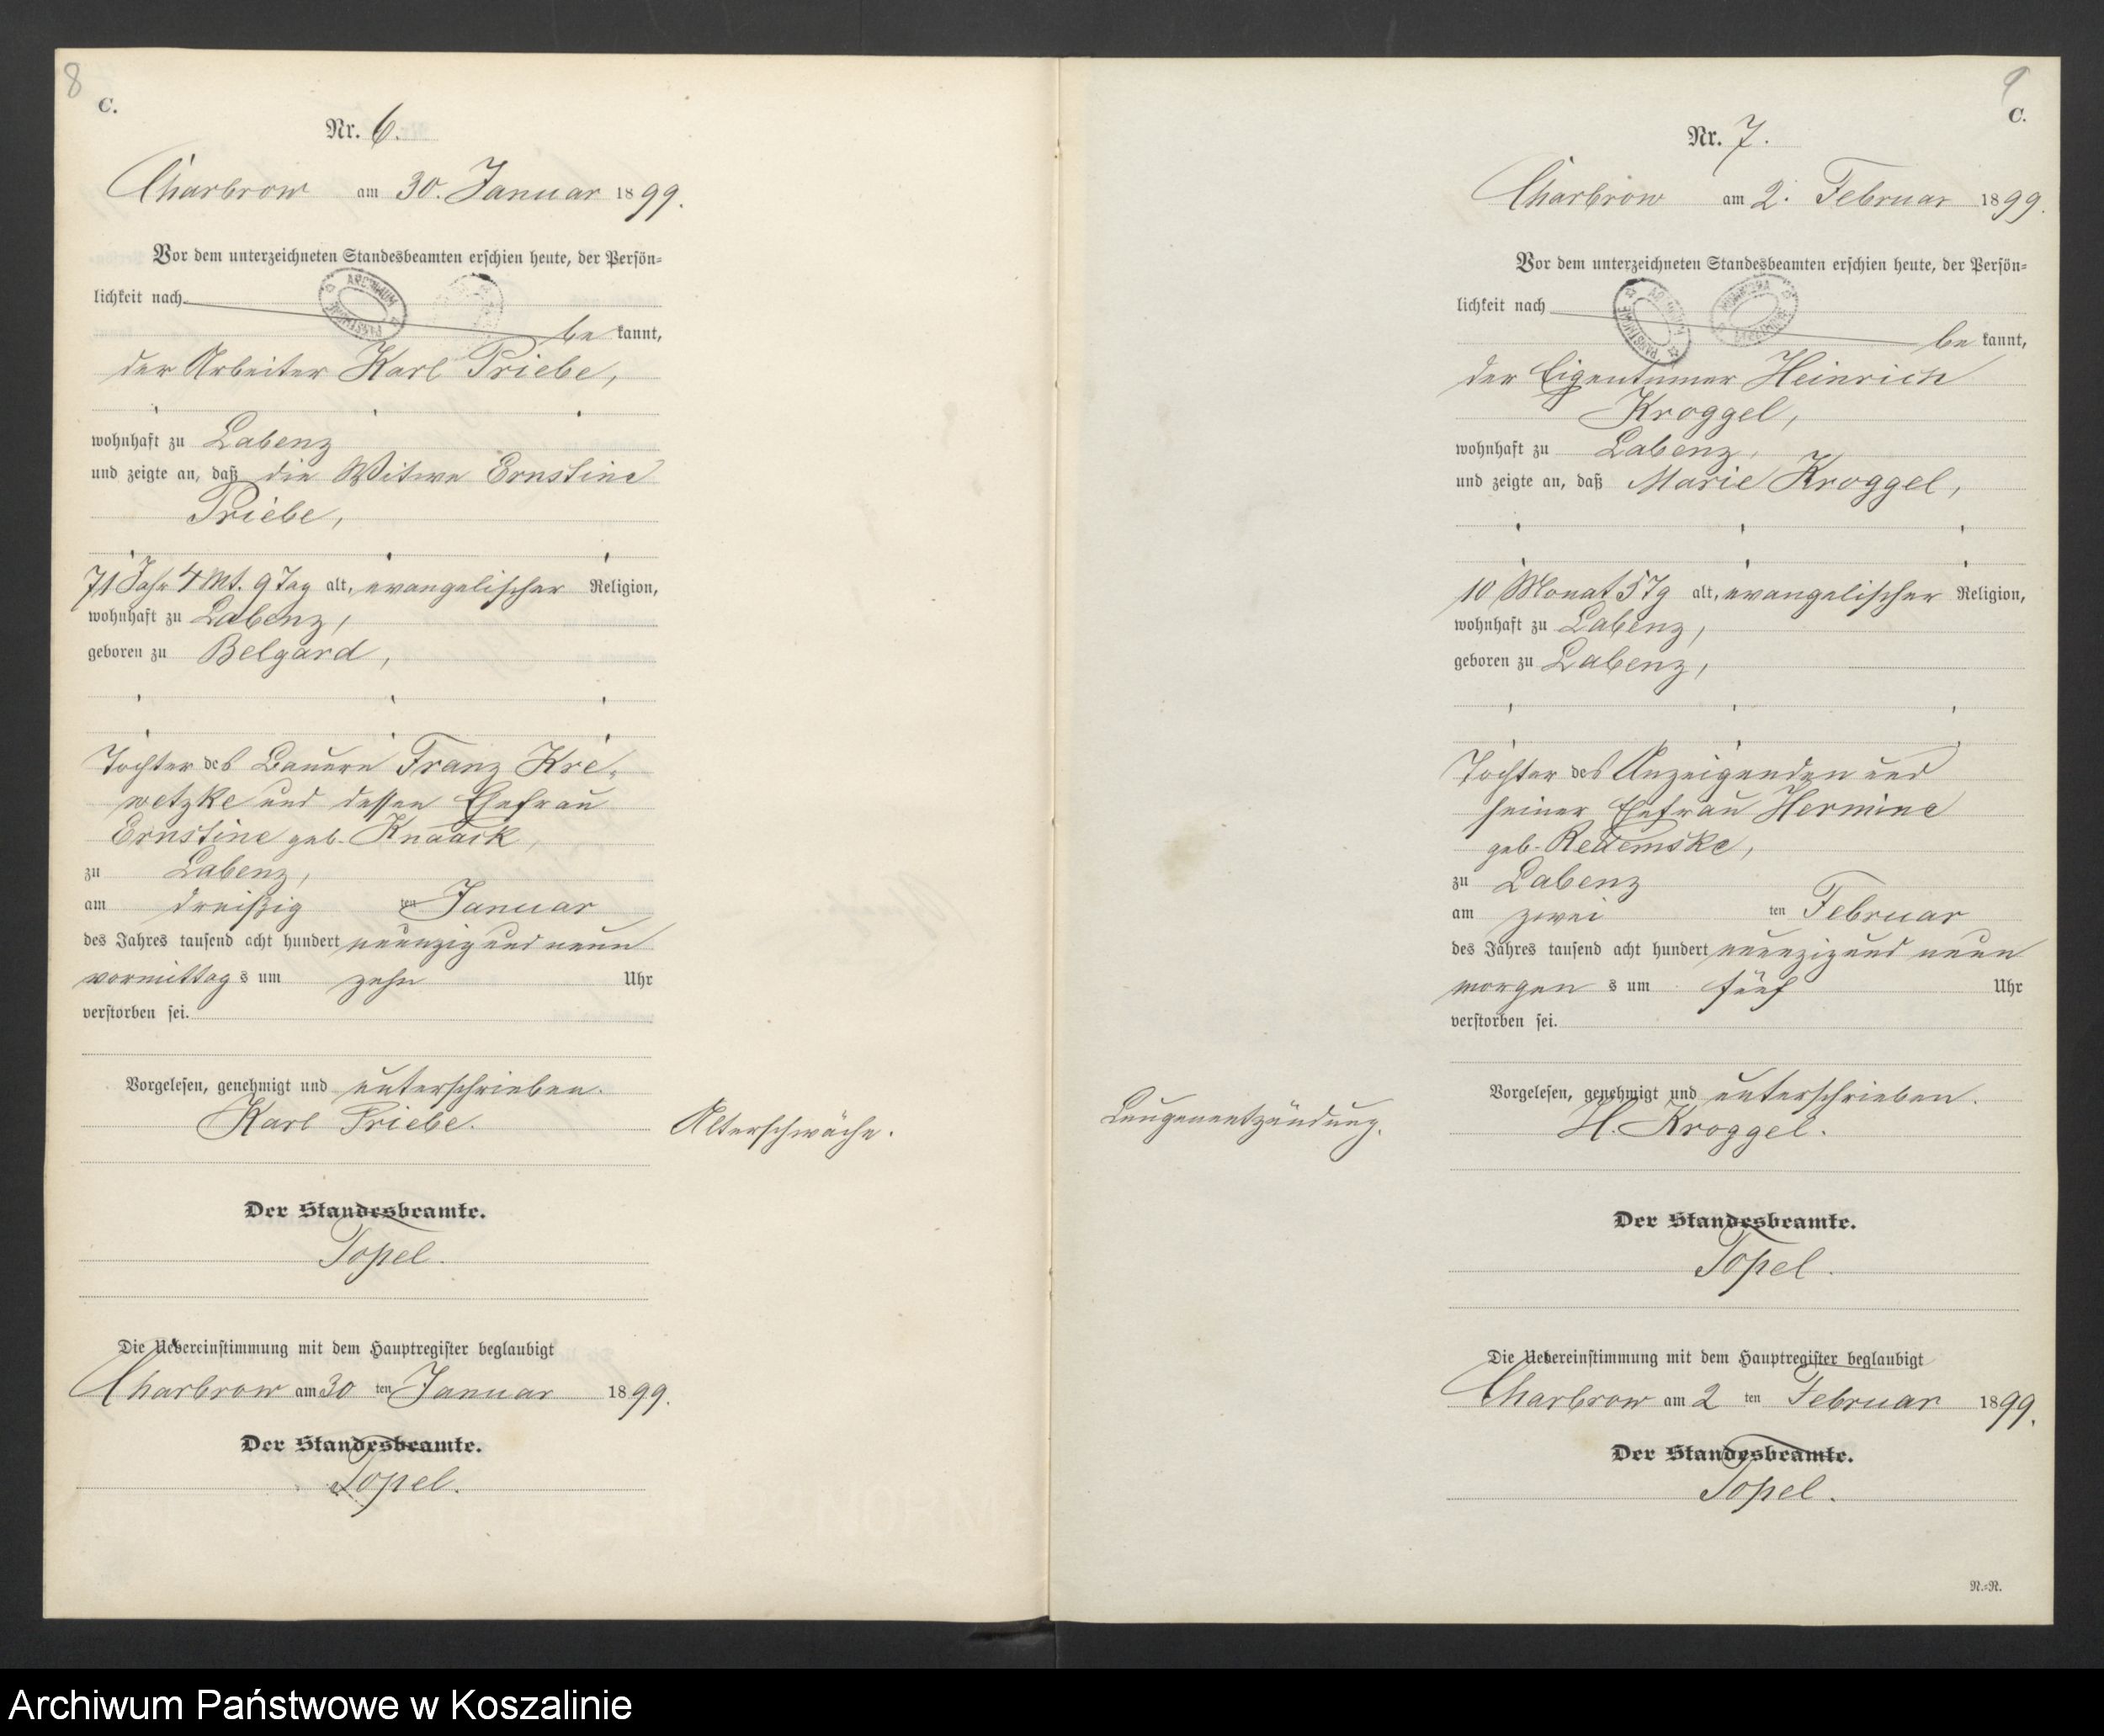 8
C.
Nr. 6.
Charbrow am 30. Januar 1899.
Vor dem unterzeichneten Standesbeamten erschien heute, der Persön-
lichkeit nach
be kannt,
der Arbeiter Karl Priebe,
wohnhaft zu Labenz
und zeigte an, daß die Witwe Ernstine
Priebe,
71 Jahr 4 Mt. 9 Tag alt, evangelischer Religion,
wohnhaft zu Labenz,
geboren zu Belgard,
Tochter des Bauern Franz Kre-
wetzke und dessen Ehefrau
Ernstine geb. Knaack,
zu Labenz,
am dreißig ten Januar
des Jahres tausend acht hundert neunzig und neun
vormittag s um zehn Uhr
verstorben sei.
Vorgelesen, genehmigt und unterschrieben.
Karl Priebe.
Alterschwäche.
Der Standesbeamte.
Topel.
Die Uebereinstimmung mit dem Hauptregister beglaubigt
Charbrow am 30 ten Januar 1899.
Der Standesbeamte.
Topel.
9
C.
Nr. 7.
Charbrow am 2. Februar 1899.
Vor dem unterzeichneten Standesbeamten erschien heute, der Persön-
lichkeit nach
be kannt,
der Eigentümer Heinrich
Kroggel,
wohnhaft zu Labenz,
und zeigte an, daß Marie Kroggel,
10 Monat 5 Tg alt, evangelischer Religion,
wohnhaft zu Labenz,
geboren zu Labenz,
Tochter des Anzeigenden und
seiner Ehefrau Hermine
geb.
zu Labenz
am zwei ten Februar
des Jahres tausend acht hundert neunzig und neun
morgen s um fünf Uhr
verstorben sei.
Vorgelesen, genehmigt und unterschrieben.
H. Kroggel.
Lungenentzündung.
Der Standesbeamte.
Topel.
Die Uebereinstimmung mit dem Hauptregister beglaubigt
Charbrow am 2 ten Februar 1899.
Der Standesbeamte.
Topel.
N.=N.
Archiwum Państwowe w Koszalinie